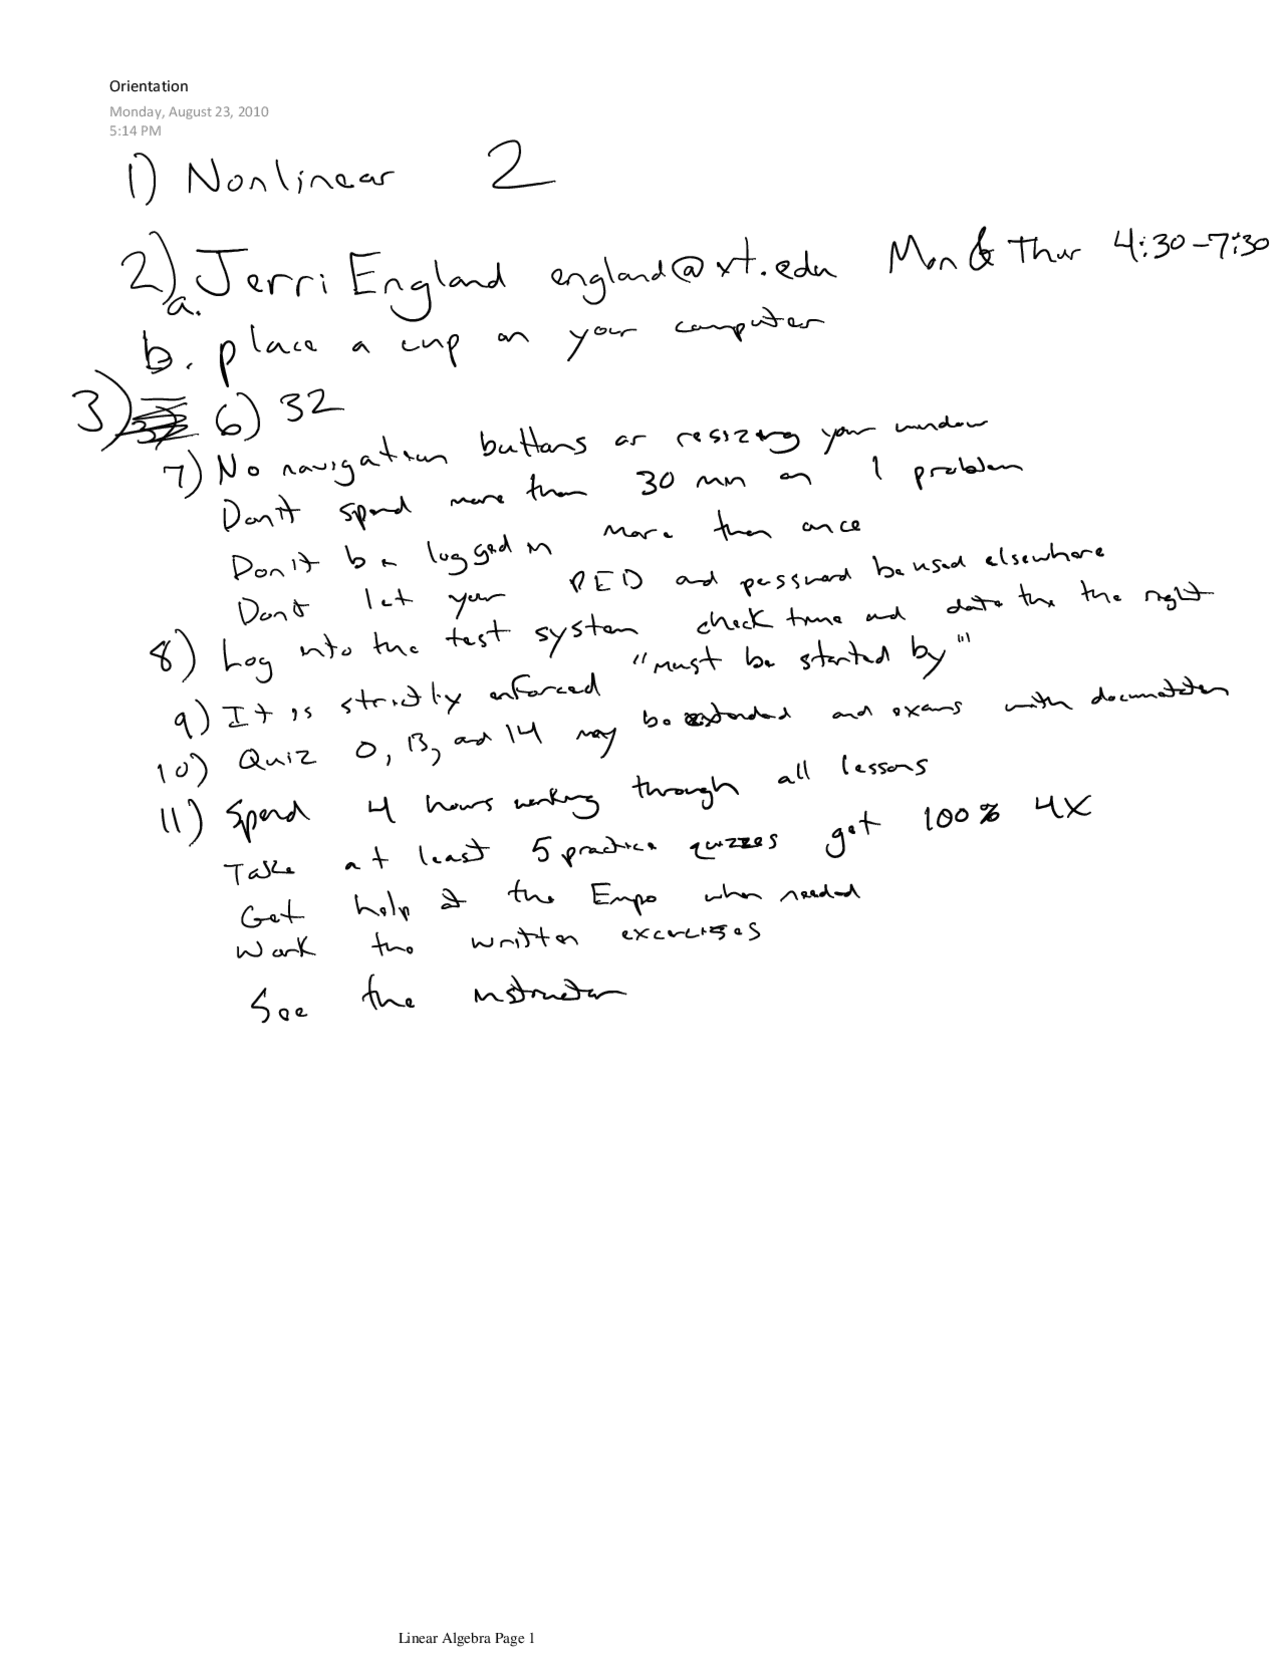 Orientation
Monday, August 23, 2010
5:14 PM
1) Nonlinear 2
2) a. Jerri England england@vt.edu Mon & Thur 4:30-7:30
b. place a cup on your computer
3) 6) 32
7) No navigation buttons or resizing your window
Don't spend more than 30 min on 1 problem
Don't be logged in more then once
Dont let your PED and password be used elsewhere
8) Log into the test system check time and date the the right
"must be started by"
9) It is strictly enforced
10) Quiz 0, 13, and 14 may be extended and exams with documentation
11) Spend 4 hours working through all lessons
Take at least 5 practice quizzes get 100% 4X
Get help at the Empo when needed
Work the written excercises
See the instructor
Linear Algebra Page 1